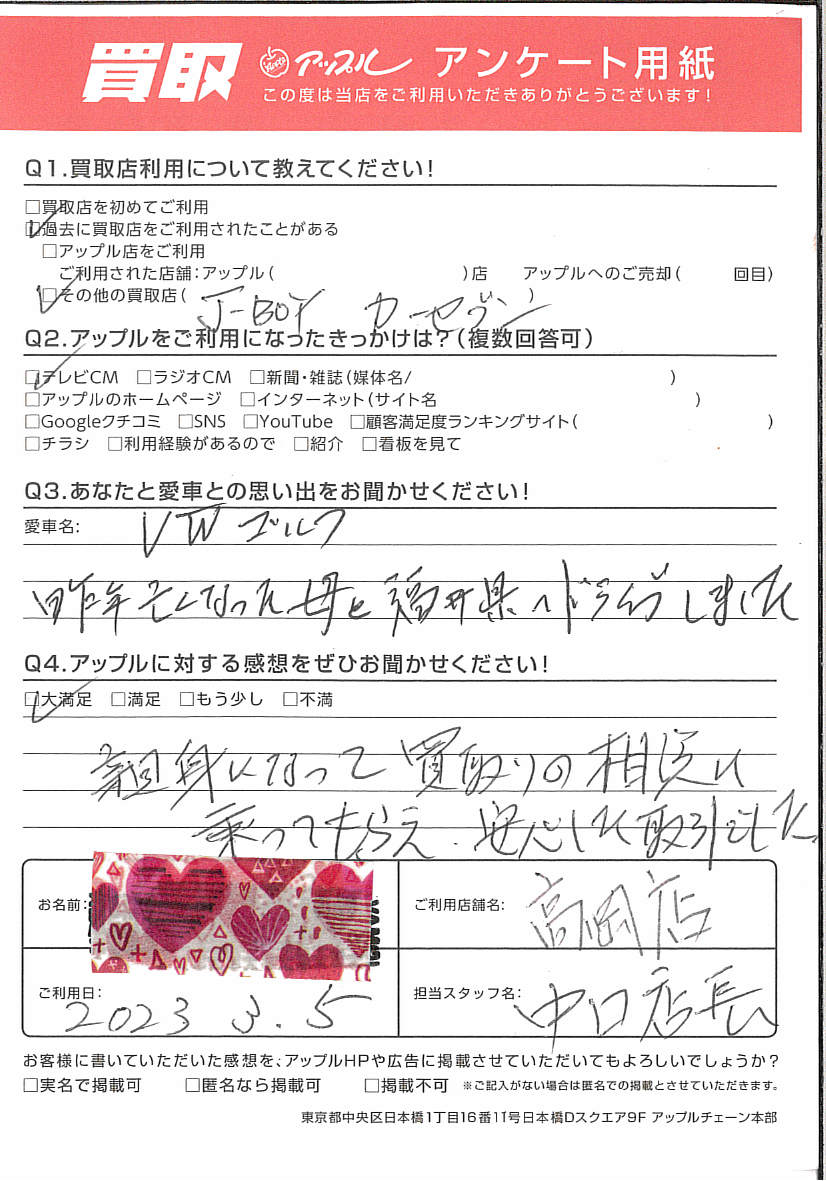 買取 Apple アップル アンケート用紙
この度は当店をご利用いただきありがとうございます！
Q1.買取店利用について教えてください！
□買取店を初めてご利用
□過去に買取店をご利用されたことがある
□アップル店をご利用
ご利用された店舗：アップル( )店 アップルへのご売却( 回目)
□その他の買取店( J-BOY カーセブン )
Q2.アップルをご利用になったきっかけは？(複数回答可)
□テレビCM □ラジオCM □新聞・雑誌(媒体名/ )
□アップルのホームページ □インターネット(サイト名 )
□Googleクチコミ □SNS □YouTube □顧客満足度ランキングサイト( )
□チラシ □利用経験があるので □紹介 □看板を見て
Q3.あなたと愛車との思い出をお聞かせください！
愛車名： VW ゴルフ
昨年亡くなった母と福井県へドライブしました
Q4.アップルに対する感想をぜひお聞かせください！
□大満足 □満足 □もう少し □不満
親身になって買取りの相談に
乗ってもらえ、安心した取引でした
お名前： ご利用店舗名： 高岡店
ご利用日： 2023 3.5 担当スタッフ名： 中口店長
お客様に書いていただいた感想を、アップルHPや広告に掲載させていただいてもよろしいでしょうか？
□実名で掲載可 □匿名なら掲載可 □掲載不可 ※ご記入がない場合は匿名での掲載とさせていただきます。
東京都中央区日本橋1丁目16番11号日本橋Dスクエア9F アップルチェーン本部